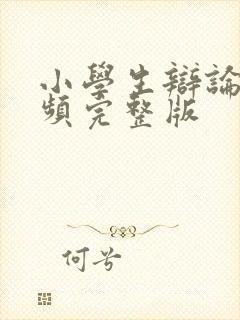 小學生辯論
頻完整版
何兮